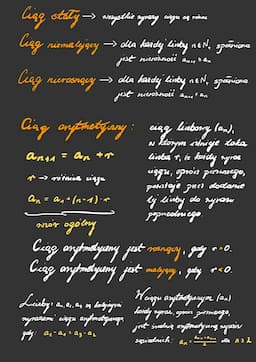 Ciąg stały → wszystkie wyrazy ciągu są równe
Ciąg niemalejący → dla każdej liczby n∈N, spełniona
jest nierówność aₙ₊₁ ≥ aₙ
Ciąg nierosnący → dla każdej liczby n∈N, spełniona
jest nierówność aₙ₊₁ ≤ aₙ
Ciąg arytmetyczny:
aₙ₊₁ = aₙ + r
r → różnica ciągu
aₙ = a₁ + (n-1)·r
wzór ogólny
ciąg liczbowy (aₙ),
w którym istnieje taka
liczba r, iż każdy wyraz
ciągu, oprócz pierwszego,
powstaje przez dodanie
tej liczby do wyrazu
poprzedniego.
Ciąg arytmetyczny jest rosnący, gdy r > 0.
Ciąg arytmetyczny jest malejący, gdy r < 0.
Liczby: a₁, a₂, a₃ są kolejnymi
wyrazami ciągu arytmetycznego,
gdy: a₂ - a₁ = a₃ - a₂
W ciągu arytmetycznym (aₙ)
każdy wyraz, oprócz pierwszego,
jest średnią arytmetyczną wyrazów
sąsiednich: